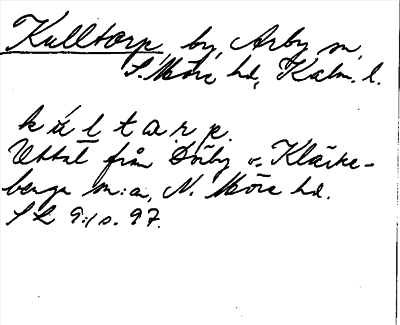 Kulltorp, by, Arby sn,
S. Möre hd, Kalm. l.
kúltarp.
Uttal från Dörby o. Kläcke-
berga sn:a, N. Möre hd.
SL 9:1 s. 97.